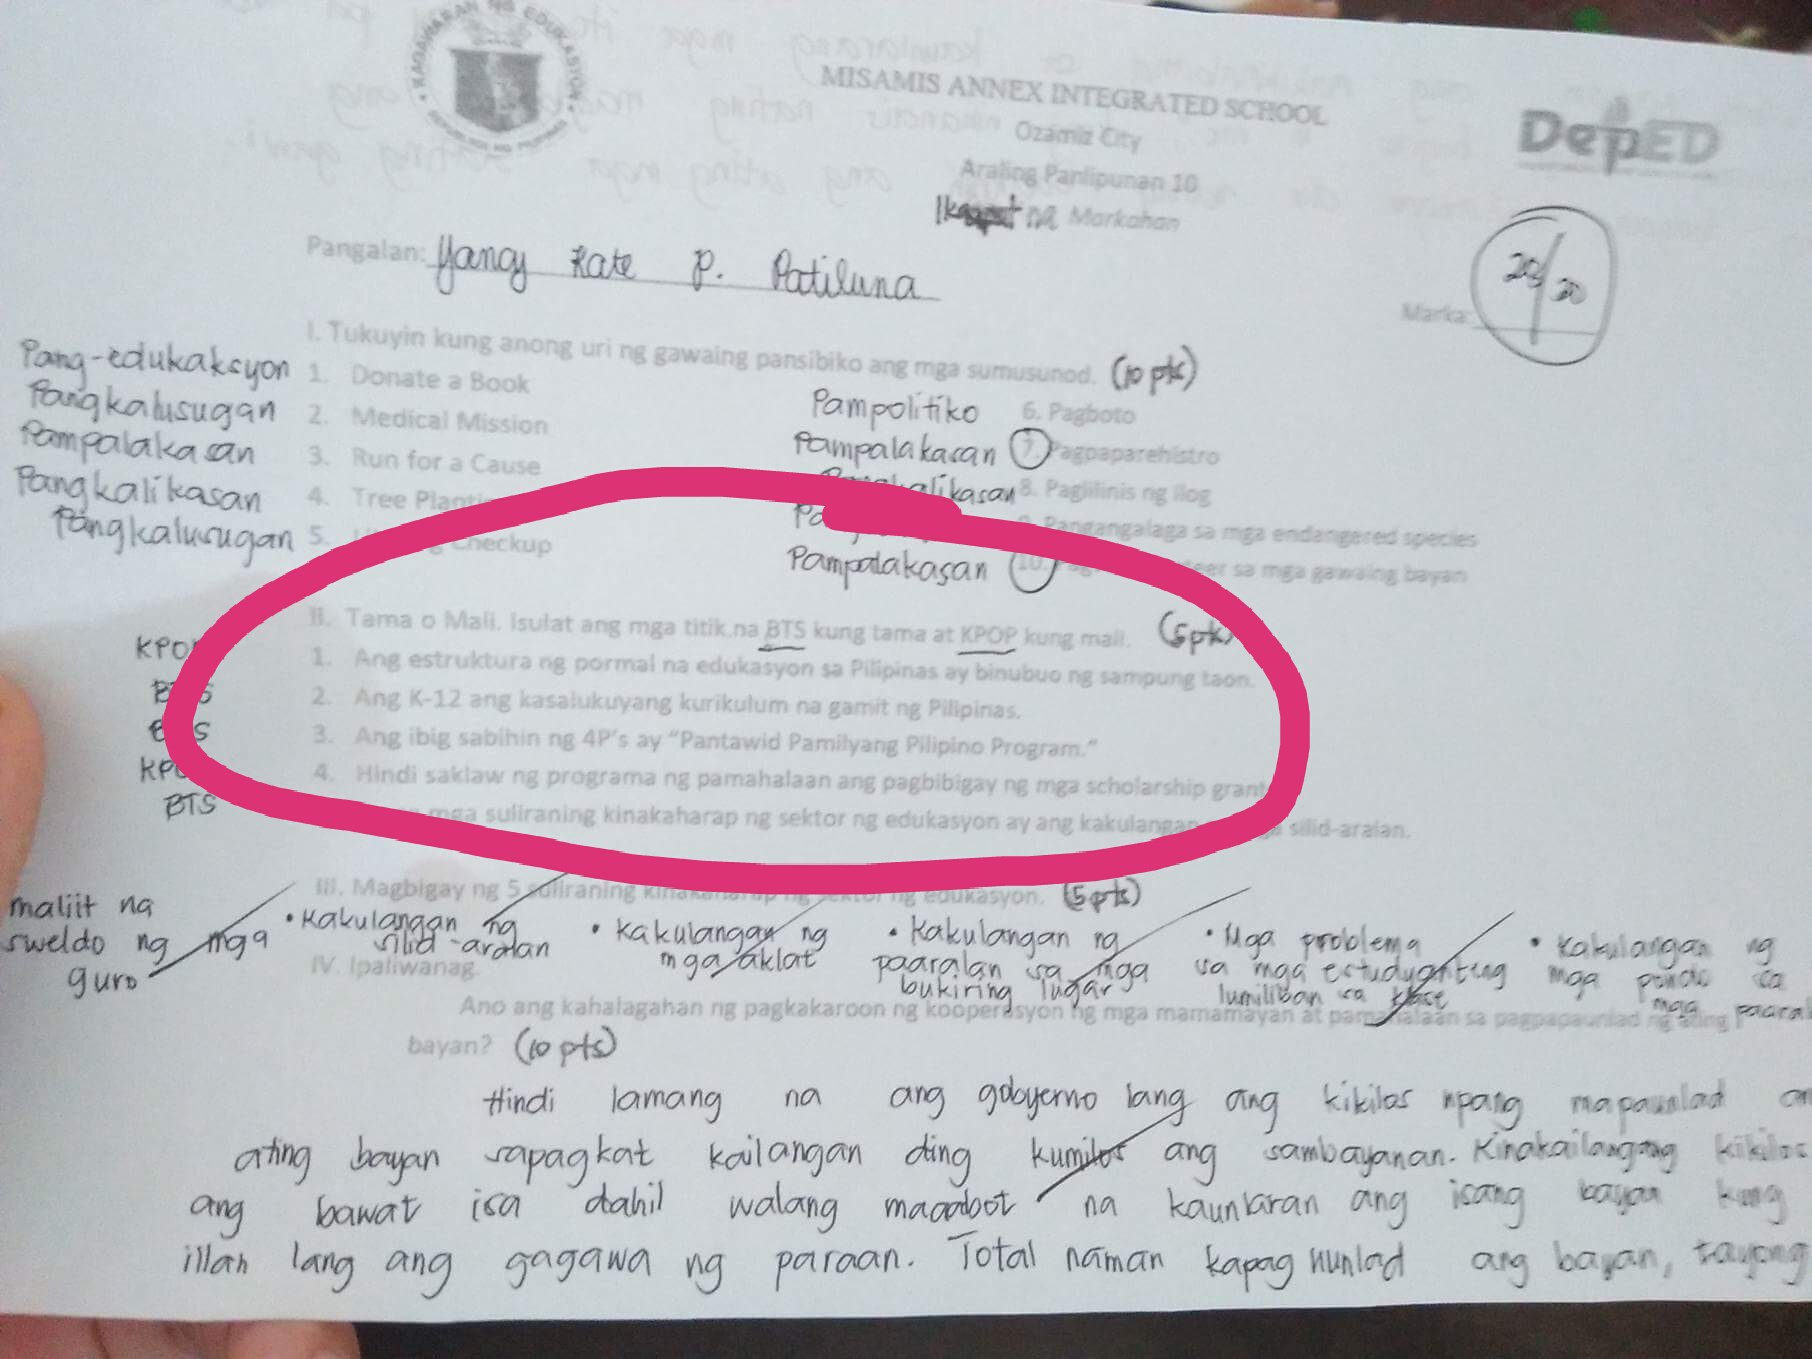 KAGAWARAN NG EDUKASYON
MISAMIS ANNEX INTEGRATED SCHOOL
DepED
Ozamiz City
Araling Panlipunan 10
na Markahan
Pangalan: Yangy Kate P. Patiluna
Marka: 20
I. Tukuyin kung anong uri ng gawaing pansibiko ang mga sumusunod. (10 pts)
Pang-edukaksyon 1. Donate a Book
Pangkalusugan 2. Medical Mission
Pampalakasan 3. Run for a Cause
Pangkalikasan 4. Tree
Pangkalusugan 5. Checkup
Pampolitiko 6. Pagboto
Pampalakasan 7. Pagpaparehistro
8. Paglilinis ng ilog
9. Pangangalaga sa mga endangered species
Pampalakasan 10. sa mga gawaing bayan
II. Tama o Mali. Isulat ang mga titik na BTS kung tama at KPOP kung mali. (5 pts)
1. Ang estruktura ng pormal na edukasyon sa Pilipinas ay binubuo ng sampung taon.
2. Ang K-12 ang kasalukuyang kurikulum na gamit ng Pilipinas.
3. Ang ibig sabihin ng 4P's ay “Pantawid Pamilyang Pilipino Program.”
4. Hindi saklaw ng programa ng pamahalaan ang pagbibigay ng mga scholarship
BTS mga suliraning kinakaharap ng sektor ng edukasyon ay ang kakulangan silid-aralan.
III. Magbigay ng 5 suliraning kinakaharap ng sektor ng edukasyon. (5 pts)
maliit na sweldo ng mga guro
• Kakulangan ng silid-aralan
• Kakulangan ng mga aklat
• Kakulangan ng paaralan sa mga bukiring lugar
• Mga problema sa mga estudyanteng lumiliban sa klase
• Kakulangan ng mga pondo sa mga
IV. Ipaliwanag.
Ano ang kahalagahan ng pagkakaroon ng kooperasyon ng mga mamamayan at pamahalaan sa pagpapaunlad ng ating
bayan? (10 pts)
Hindi lamang na ang gobyerno lang ang kikilos upang mapaunlad
ating bayan sapagkat kailangan ding kumilos ang sambayanan. Kinakailangang kikilos
ang bawat isa dahil walang maaabot na kaunlaran ang isang bayan kung
iilan lang ang gagawa ng paraan. Total naman kapag uunlad ang bayan, tayong